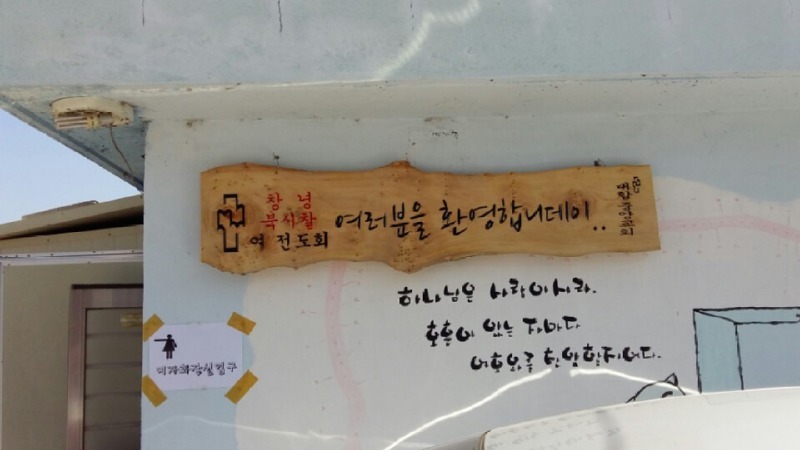 창녕
북시찰
여 전도회
여러분을 환영합니데이..
대합중앙교회
하나님은 사랑이시라.
호흡이 있는 자마다
여호와를 찬양할지어다.
여자화장실입구